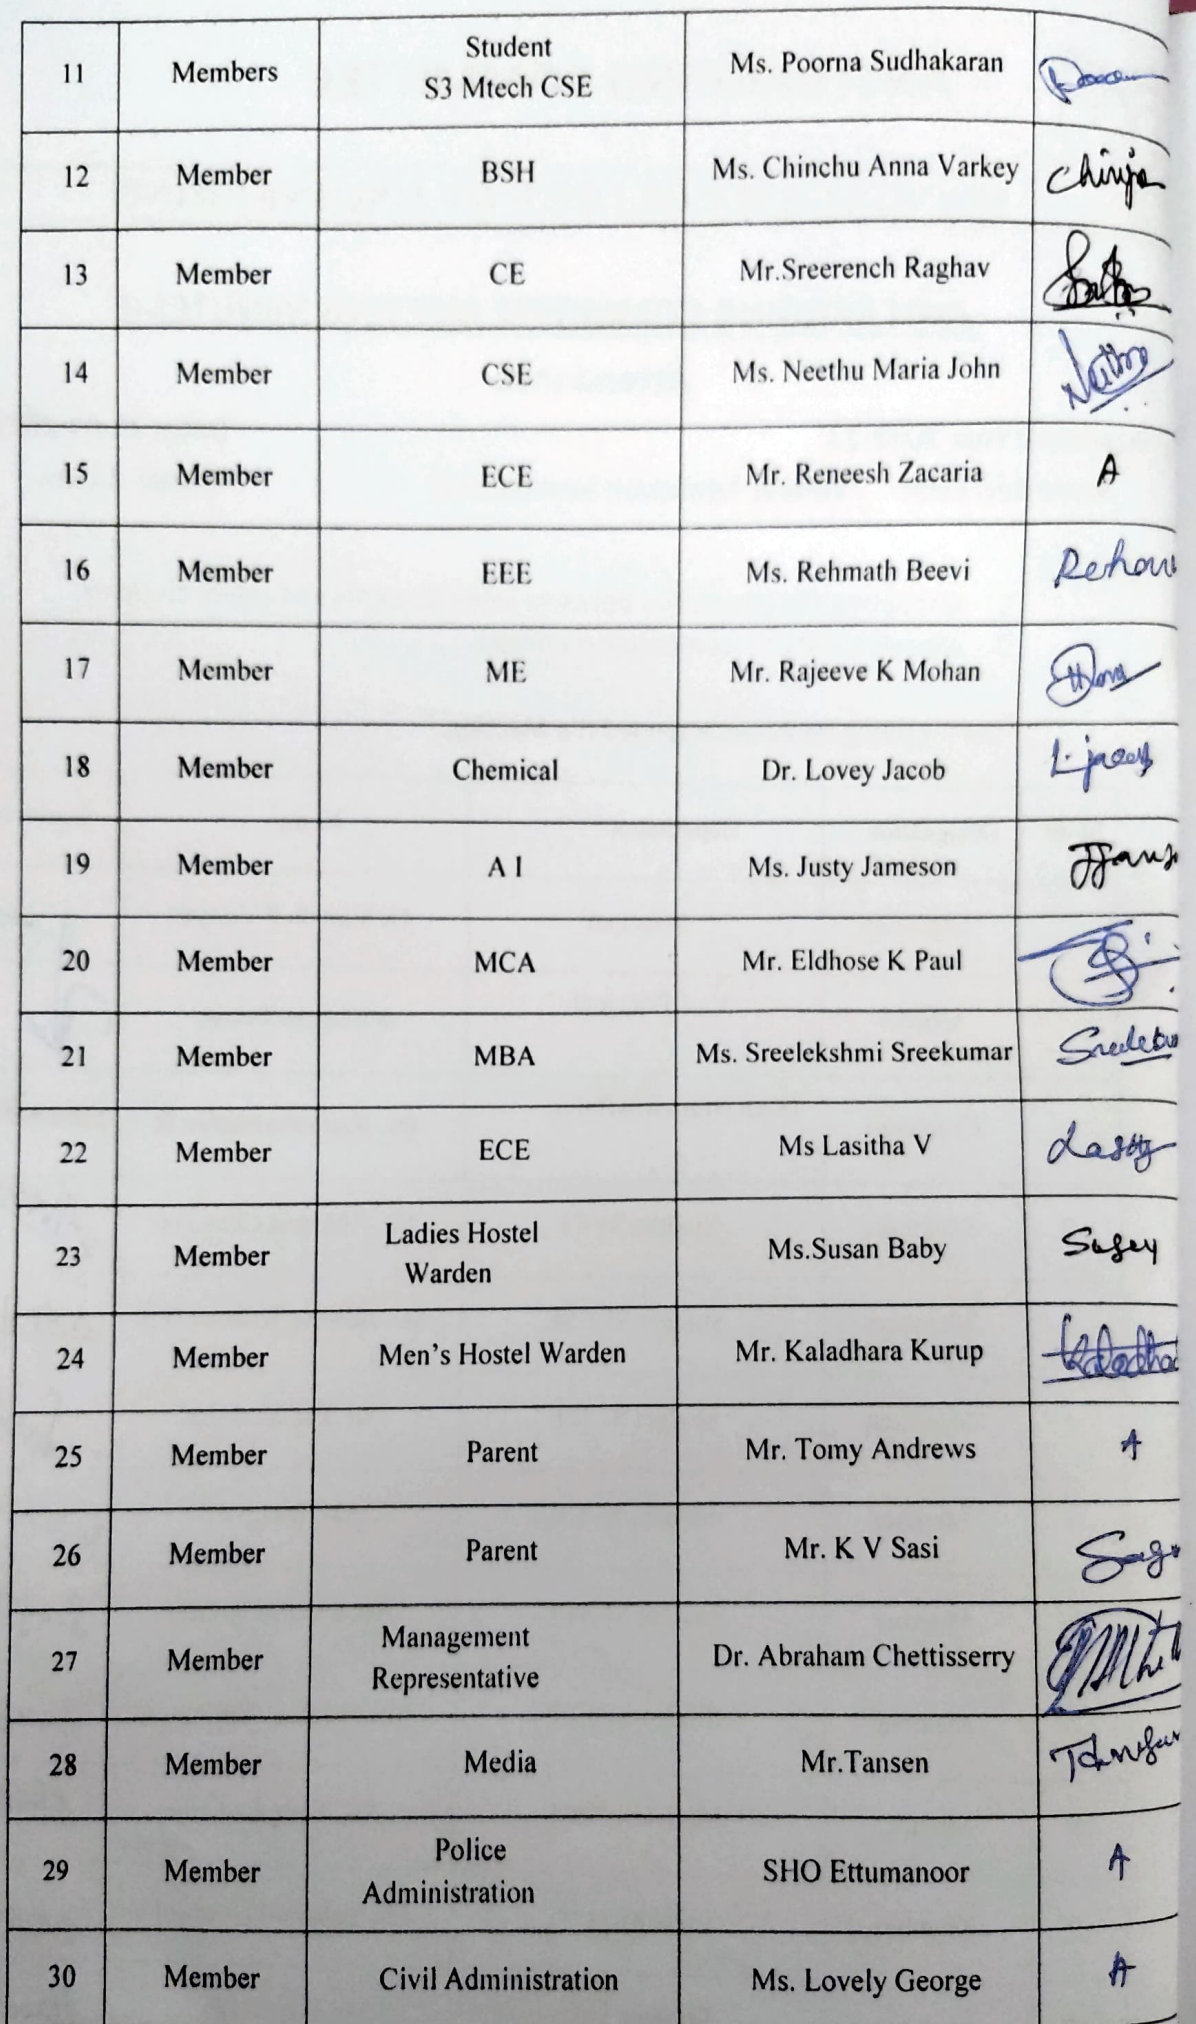 11 Members Student S3 Mtech CSE Ms. Poorna Sudhakaran
12 Member BSH Ms. Chinchu Anna Varkey
13 Member CE Mr.Sreerench Raghav
14 Member CSE Ms. Neethu Maria John
15 Member ECE Mr. Reneesh Zacaria A
16 Member EEE Ms. Rehmath Beevi
17 Member ME Mr. Rajeeve K Mohan
18 Member Chemical Dr. Lovey Jacob
19 Member A I Ms. Justy Jameson
20 Member MCA Mr. Eldhose K Paul
21 Member MBA Ms. Sreelekshmi Sreekumar
22 Member ECE Ms Lasitha V
23 Member Ladies Hostel Warden Ms.Susan Baby
24 Member Men's Hostel Warden Mr. Kaladhara Kurup
25 Member Parent Mr. Tomy Andrews A
26 Member Parent Mr. K V Sasi
27 Member Management Representative Dr. Abraham Chettisserry
28 Member Media Mr.Tansen
29 Member Police Administration SHO Ettumanoor A
30 Member Civil Administration Ms. Lovely George A